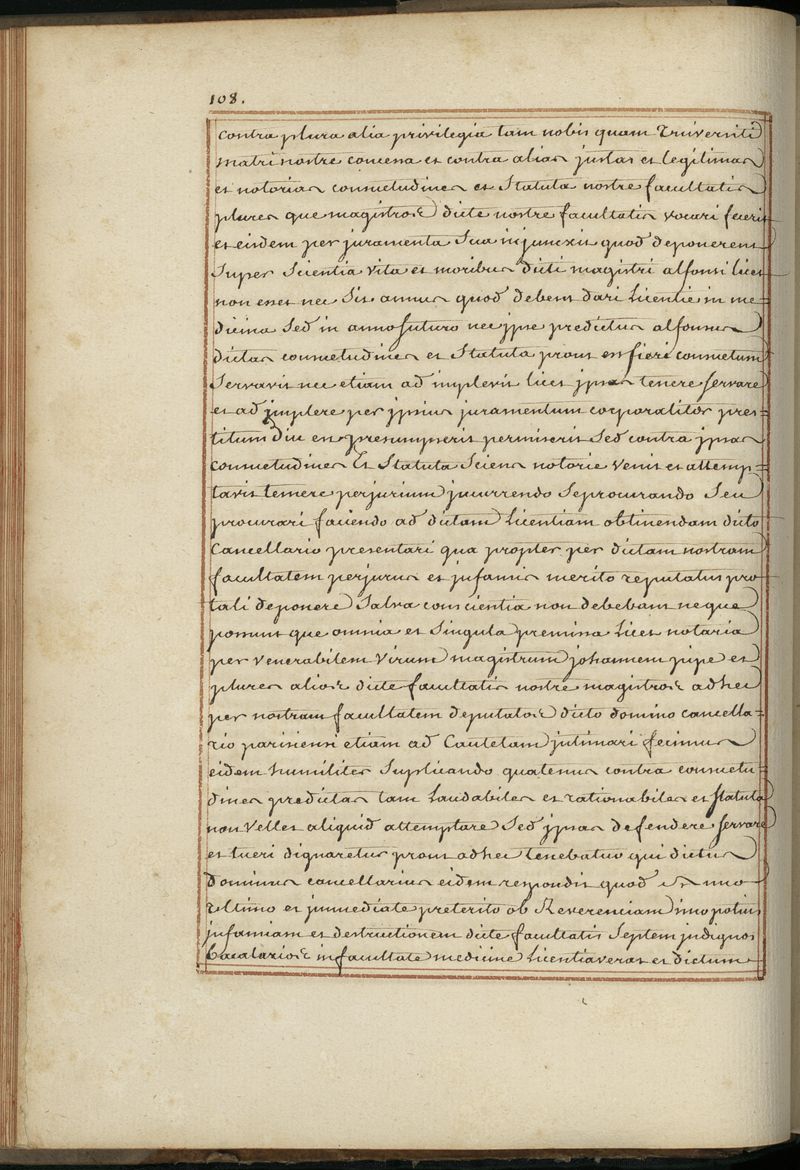 108.
contra plura alia privilegia tam nobis quam Universiti
matri nostre concessa et contra alias justas et legitimas
et notorias consuetudines et Statuta nostre facultatis
plures que magistros dicte nostre facultatis vocari fecerit
et eisdem per juramenta Sua injunxit quod deponerent
Super Scientia vita et moribus dicti magistri alfonsi licet
non esset nec Sit annus quod debent dari Licentie in me=
dicina Sed in anno futuro nec jpse predictus alfonsus
dictas consuetudines et Statuta prout est fieri consuetum
Servavit nec etiam ad implevit licet jpsas tenere servare
et ad jmplere per jpsius juramentum corporaliter pres=
titum Diu est presumpserit permiserit Sed contra jpsas
consuetudines Et Statuta Sciens notorie venit et attemp=
tavit temere perjurium jncurrendo Se procurando Seu
procurari faciendo ad dictam Licentiam obtinendam dicto
Cancellario presentari qua propter per dictam nostram
facultatem perjurus et jnfamis merito reputatus pro
tali deponere Salva conscientia non debebant neque
possunt que omnia et Singula premissa Licet notaria
per venerabilem virum magistrum johannem pipe et
plures alios dicte facultatis nostre magistros ad hec
per nostram facultatem deputatos dicto domino cancella=
rio parisiensi etiam ad Cautelam jntimari fecimus
eidem humiliter Suplicando quatenus contra consuetu=
dines predictas tam Laudabiles et rationabiles et Statuta
non Vellet aliquid attemptare Sed jpsas defendere servare
et tueri dignaretur prout ad hec tenebatur qui dictus
Dominus cancellarius eidem respondit quod anno
ultimo et jmmediate preterito ob Reverenciam imo potius
jnfamiam et destructionem dicte facultatis Septem jndignos
bacalarios in facultate medicine Licentiaverat et dictum